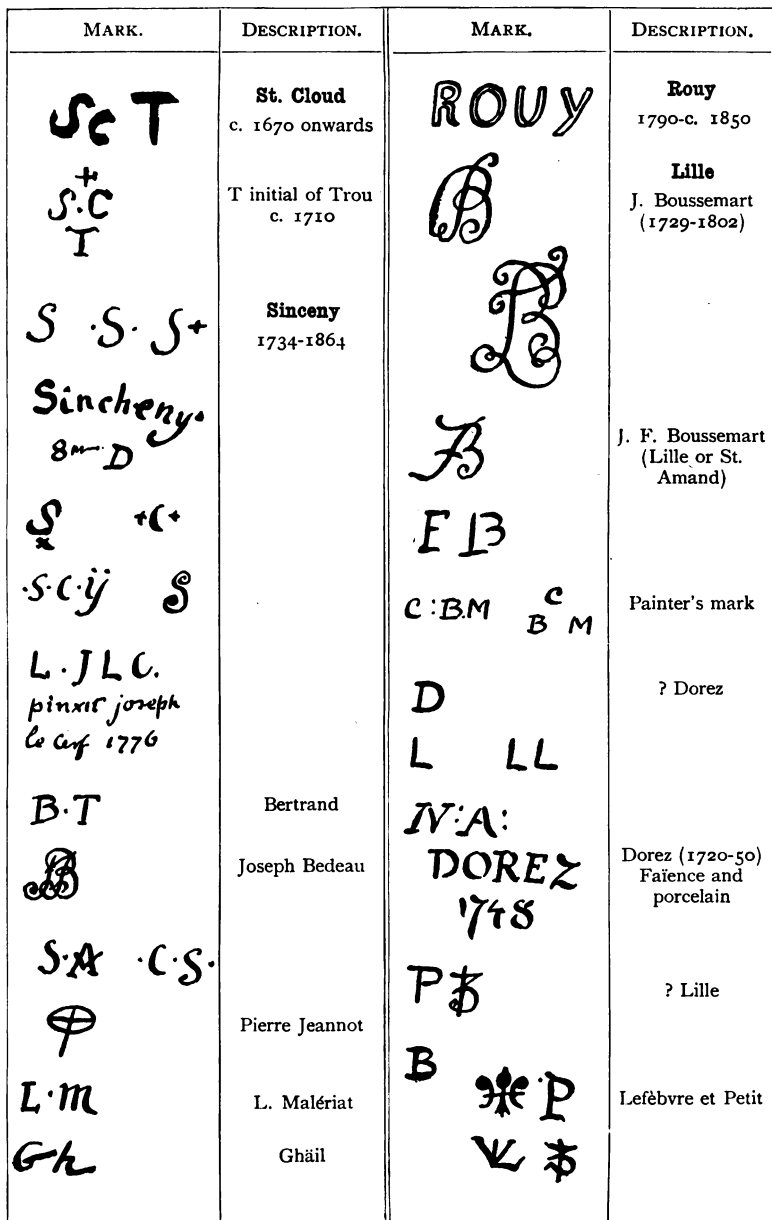 MARK. DESCRIPTION.
Sc T St. Cloud
c. 1670 onwards
+
S·C T initial of Trou
T c. 1710
S ·S· S+ Sinceny
1734-1864
Sincheny·
8 D
S +C+
x
·S·C·ÿ S
L·JLC.
pinxit joseph
le Cerf 1776
B·T Bertrand
B Joseph Bedeau
S·A ·C·S·
Pierre Jeannot
L·m L. Malériat
Gh Ghäil
MARK. DESCRIPTION.
ROUY Rouy
1790-c. 1850
B Lille
J. Boussemart
(1729-1802)
B
B J. F. Boussemart
(Lille or St.
Amand)
F B
C:B.M C Painter's mark
B M
D ? Dorez
L LL
IV:A:
DOREZ Dorez (1720-50)
1748 Faïence and
porcelain
P ? Lille
B
P Lefèbvre et Petit